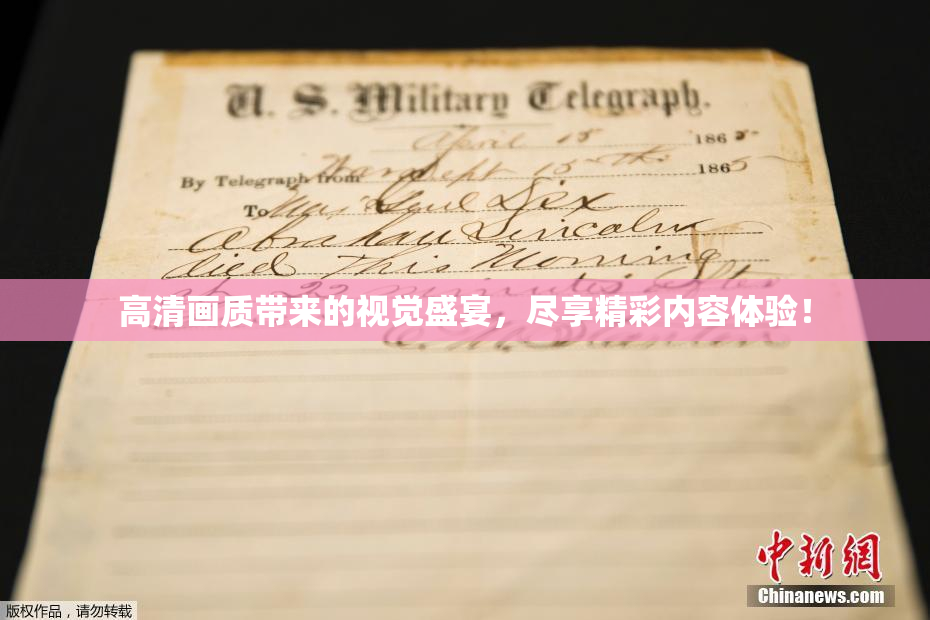 U. S. Military Telegraph.
April 15 1865
By Telegraph from War Dept 15th 1865
To Maj Genl Dix
Abraham Lincoln
died this Morning
at 22 minutes after
高清画质带来的视觉盛宴，尽享精彩内容体验！
E. M. Stanton
中新网
Chinanews.com
版权作品，请勿转载